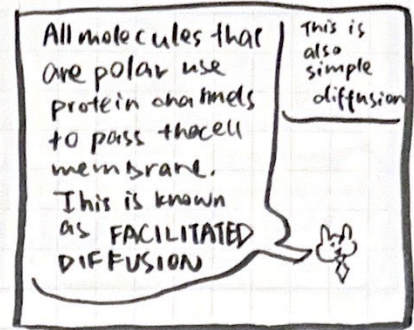 All molecules that
are polar use
protein channels
to pass the cell
membrane.
This is known
as FACILITATED
DIFFUSION
This is
also
simple
diffusion